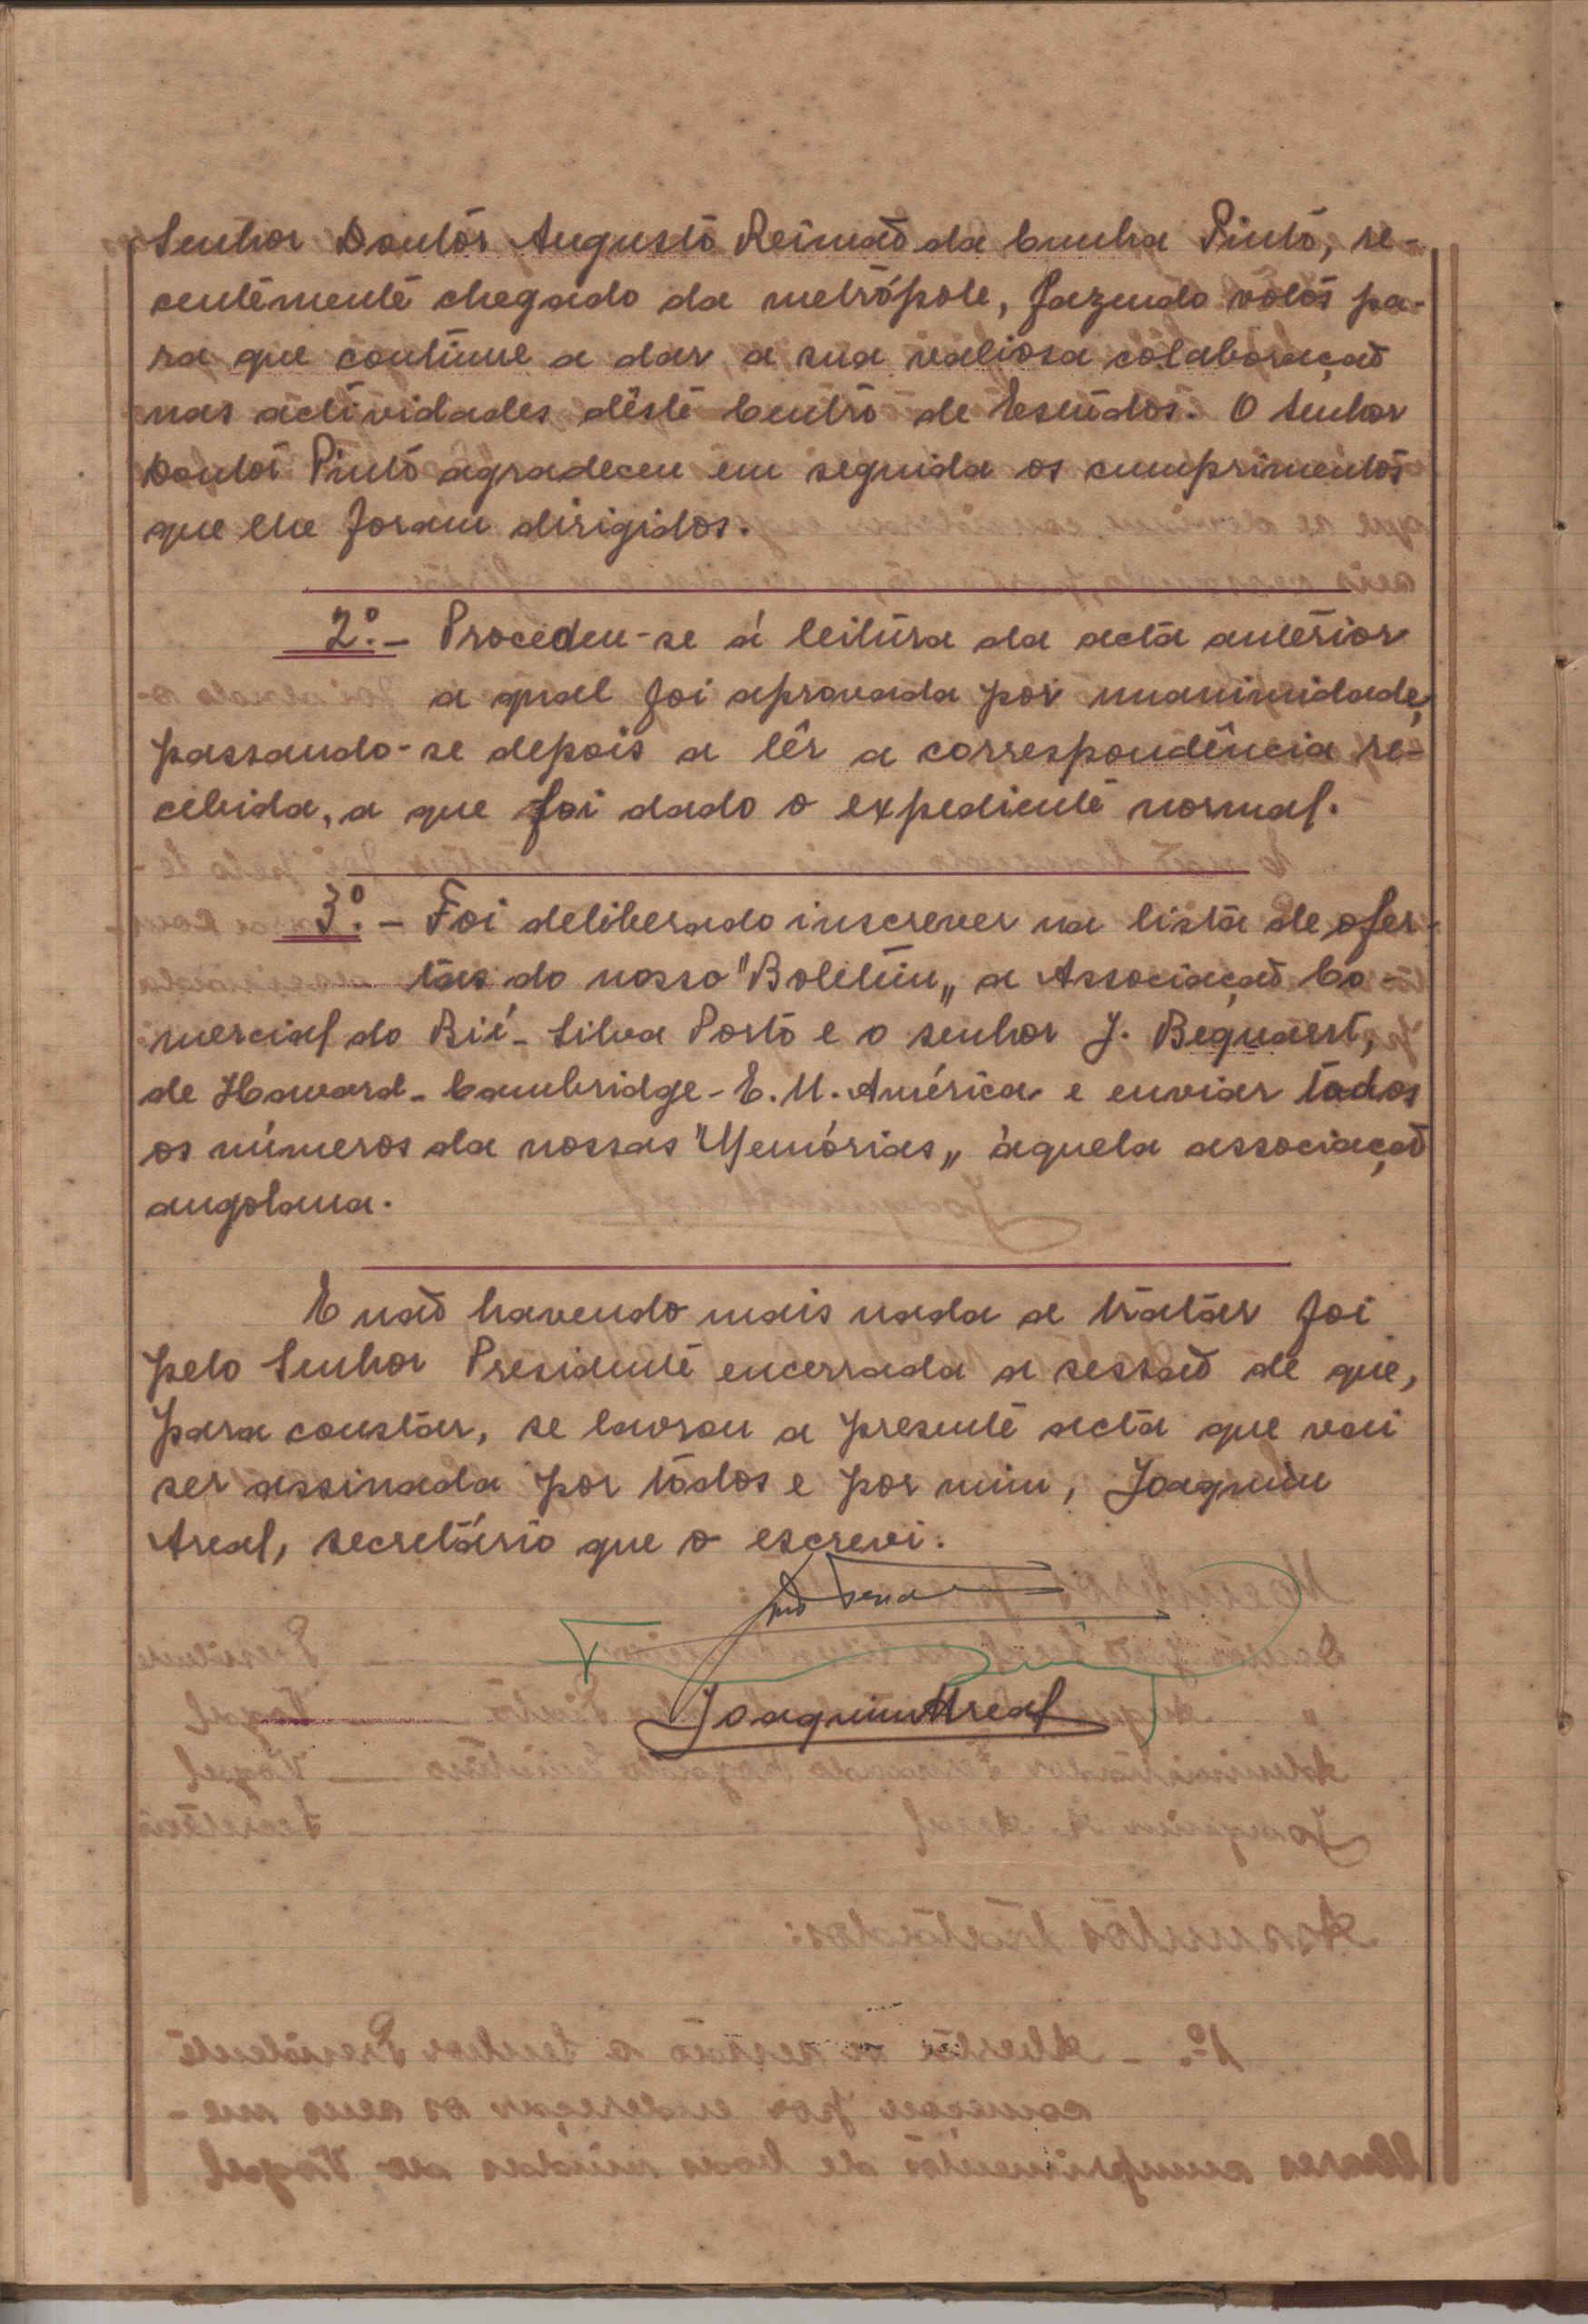 Senhor Doutor Augusto Reimão da Cunha Pinto, re-
centemente chegado da metrópole, fazendo votos pa-
ra que continue a dar a sua valiosa colaboração
nas actividades dêste Centro de Estudos. O Senhor
Doutor Pinto agradeceu em seguida os cumprimentos
que lhe foram dirigidos.
2º. - Procedeu-se á leitura da acta anterior
a qual foi aprovada por unanimidade,
passando-se depois a lêr a correspondência re-
cebida, a que foi dado o expediente normal.
3º. - Foi deliberado inscrever na lista de ofer-
tas do nosso "Boletim„ a Associação Co-
mercial do Bié - Silva Porto e o senhor J. Bequaert,
de Havard - Cambridge - E. U. América e enviar todos
os números da nossas "Memórias„ àquela associação
angolana.
E não havendo mais nada a tratar foi
pelo Senhor Presidente encerrada a sessão de que,
para constar, se lavrou a presente acta que vai
ser assinada por todos e por mim, Joaquim
Areal, secretário que o escrevi.
Joaquim Areal